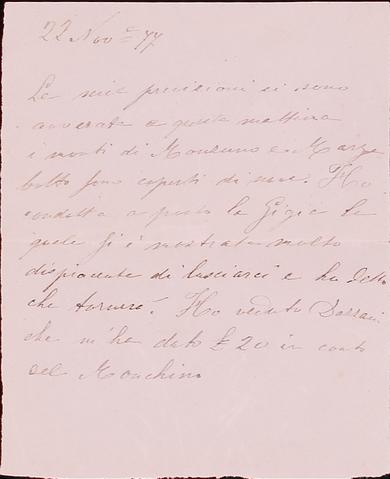 22 Nov.e 77
Le mie previsioni si sono
avverate e questa mattina
i monti di Monzuno e Marza
botto sono coperti di neve. Ho
condotta a posto la Gigia la
quale si è mostrata molto
dispiacente di lasciarci e ha detto
che tornerà. Ho veduto
che m'ha dato £ 20 in conto
del Monchino